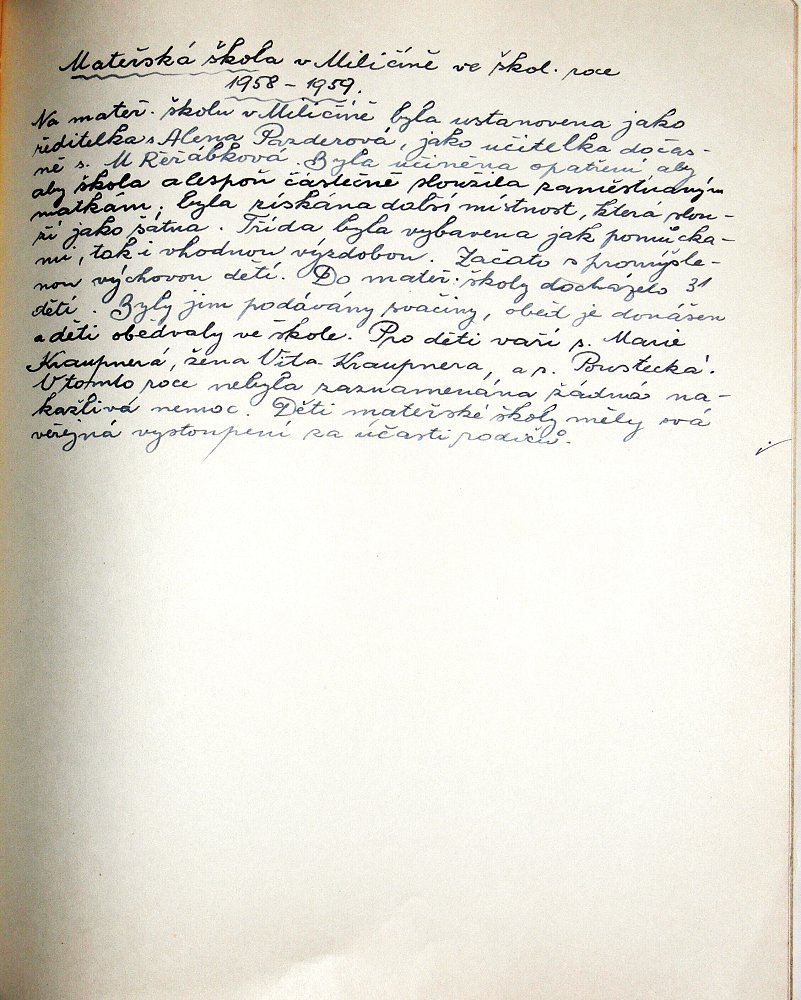 Mateřská škola v Miličíně ve škol. roce
1958 - 1959.
Na mateř. školu v Miličíně byla ustanovena jako
ředitelka s. Alena Pazderová, jako učitelka dočas-
ně s. M Řeřábková. Byla učiněna opatření, aby
aby škola alespoň částečně sloužila zaměstnaným
matkám; byla získána další místnost, která slou-
ží jako šatna. Třída byla vybavena jak pomůcka-
mi, tak i vhodnou výzdobou. Začato s promyšle-
nou výchovou dětí. Do mateř. školy docházelo 31
dětí. Byly jim podávány svačiny, oběd je donášen
a děti obědvaly ve škole. Pro děti vaří s. Marie
Kraupnerá, žena Víta Kraupnera, a s. Poustecká.
V tomto roce nebyla zaznamenána žádná na-
kažlivá nemoc. Děti mateřské školy měly svá
veřejná vystoupení za účasti rodičů.